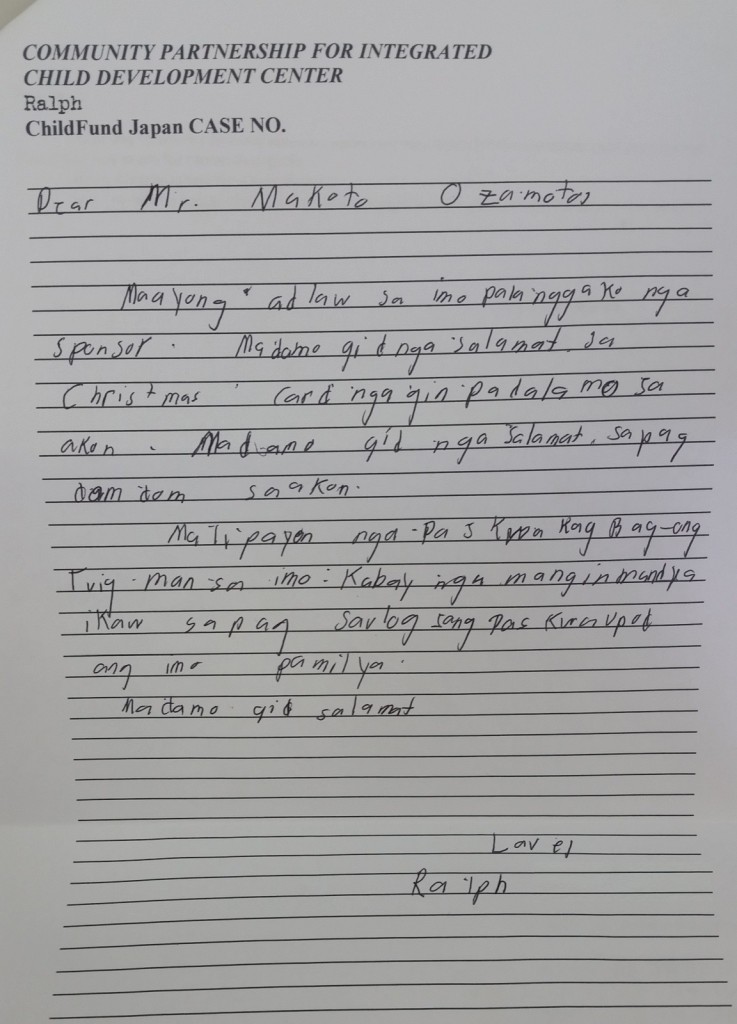 COMMUNITY PARTNERSHIP FOR INTEGRATED
CHILD DEVELOPMENT CENTER
Ralph
ChildFund Japan CASE NO.
Dear Mr. Makoto Ozamotos
Maayong adlaw sa imo palanggako nga
sponsor. Madamo gid nga salamat sa
Christmas Card nga gin padala mo sa
akon. Madamo gid nga salamat, sa pag
dom dom saakon.
Malipayon nga Paskwa kag Bag-ong
Tuig man sa imo: Kabay nga mangin
ikaw sa pag saulog sang upod
ang imo pamilya.
Madamo gid salamat
Ralph